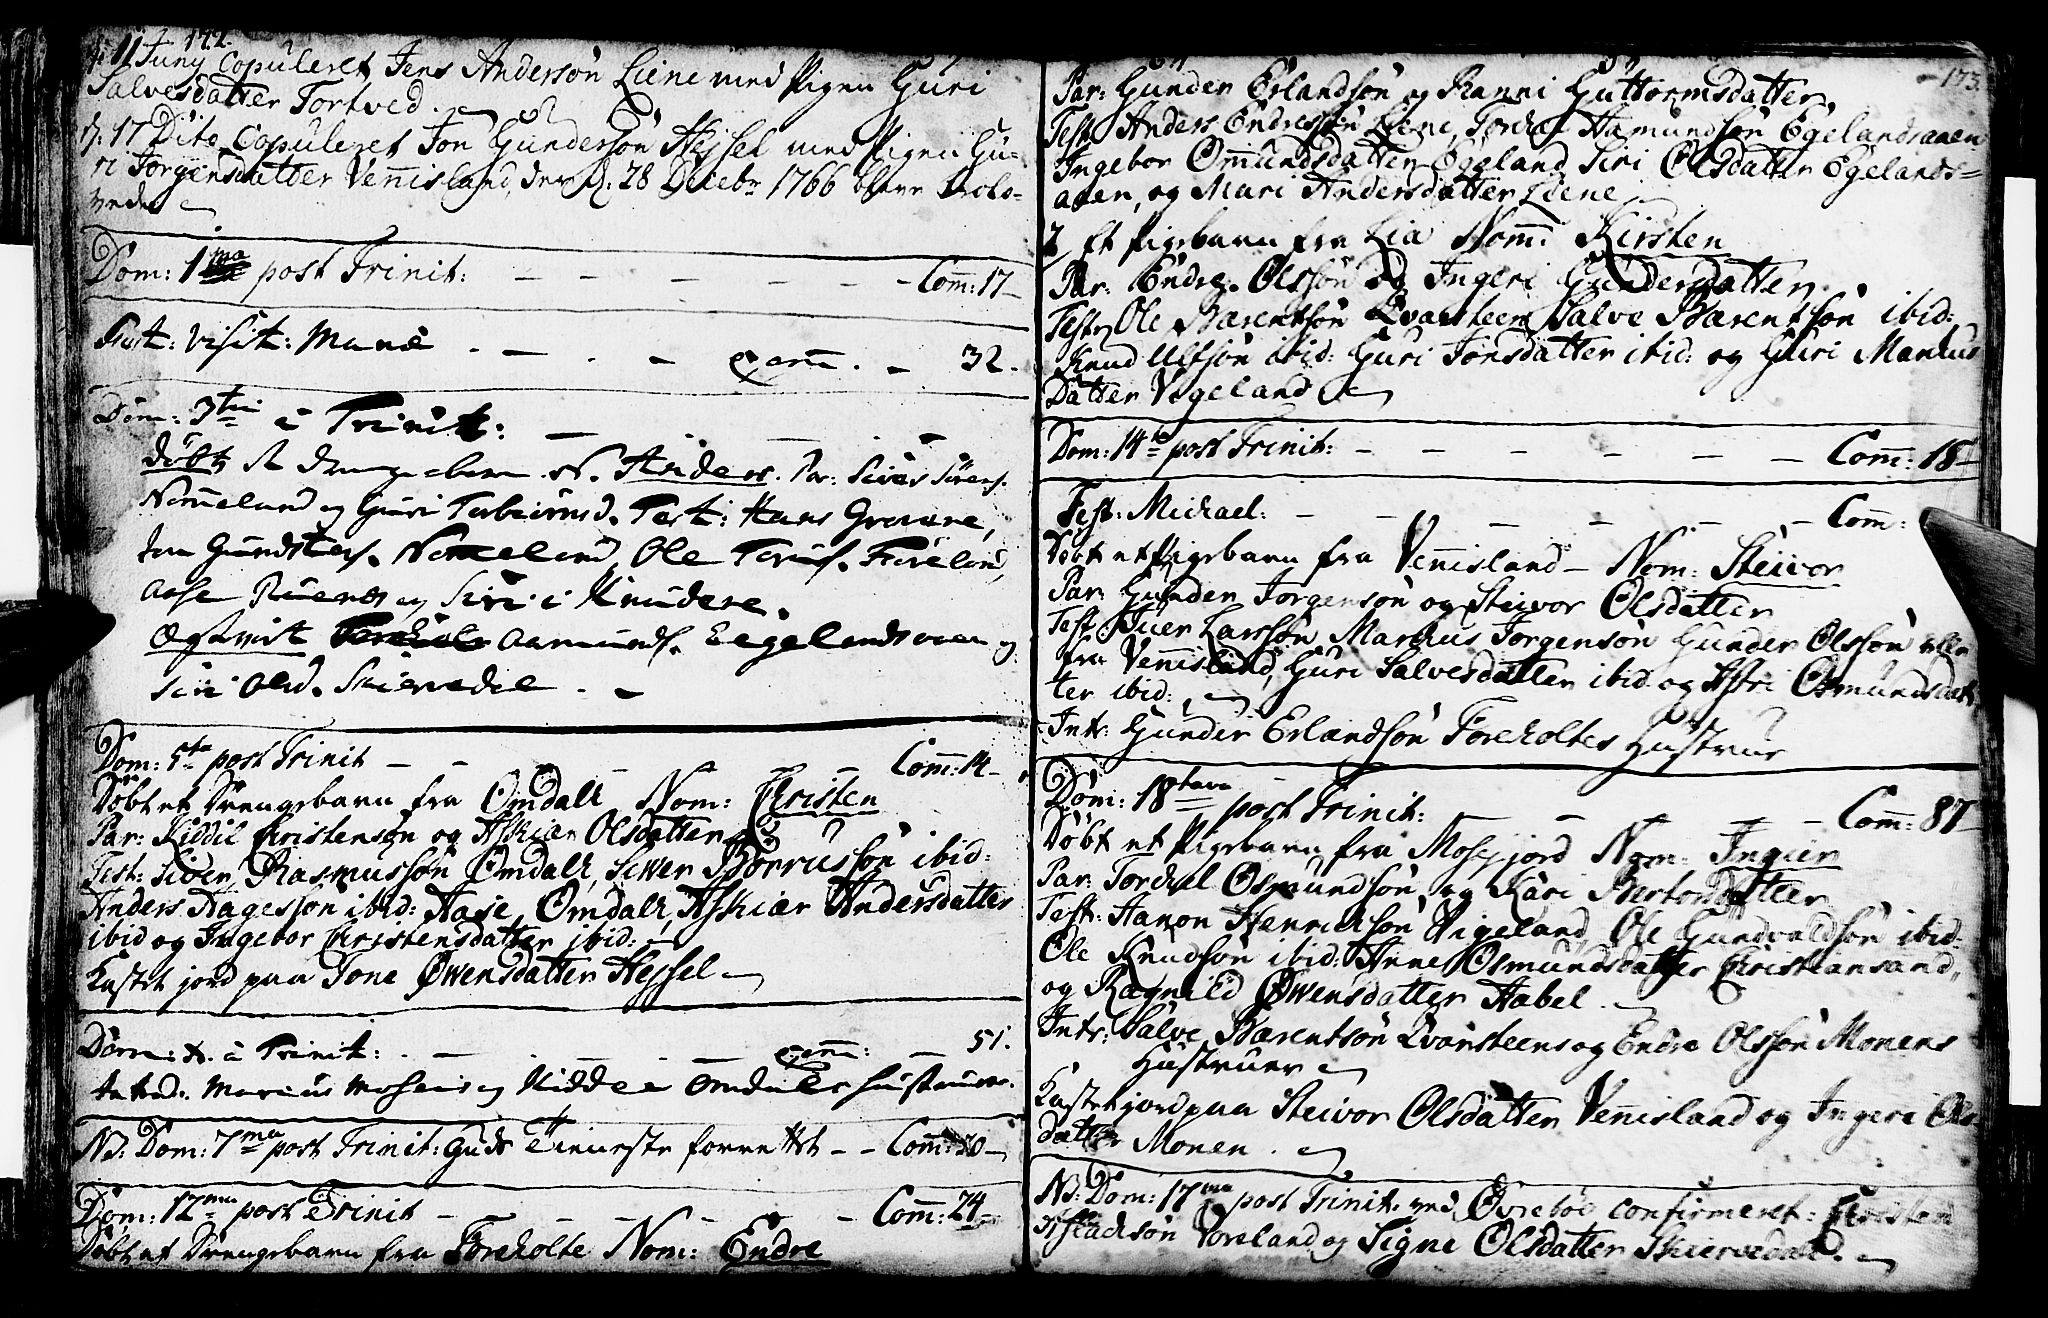 172.
d: 11 Juny Copuleret Jens Andersön Liene med Pigen Guri
Salvesdatter Tortved.
d. 17 Dito Copuleret Jon Gundersön Hejsel med Pigen Gu-
ri Jorgensdatter Vennisland, der d. 28 Decebr 1766 bleve trolo-
vede
Dom: 1ma post Trinit: Com: 17
Fest: Visit: Mariæ Com. 32.
Dom: 3tia à Trinit:
döbt et drengebarn N. Anders. Par: Sivert Sörens.
Nomeland og Guri Torbiörnsd. Test: Hans Grovane,
Jon Gundsters. Nomeland, Ole Torus. Föreland,
Aase Ruenes og Siri i Knudere.
Ægteviet Torkel Aamunds. Eigelandsaaen og
Siri Olsd. Skieredal.
Dom: 5te post Trinit Com: 14
Döbt et Drengebarn fra Omdal Nom: Christen
Par: Kiddil Christensön og Askier Olsdatter
Test: Siver Rasmussön Omdal, Siver Börrussön ibid:
Anders Aagessön ibid: Aase Omdal, Askier Andersdatter
ibid og Ingebor Christensdatter ibid:
Kastet jord paa Tone Øwensdatter Hejsel
Dom: 6. à Trinit: Com: 51.
Introd. Marcus Mosens og Kiddel Omdals Hustruer.
NB: Dom: 7ma post Trinit: Guds Tieneste forrettet Com: 30
Dom: 12ma post Trinit Com: 24
Döbt et Drengebarn fra Foreholte Nom: Endre
173.
Par: Gunder Erlandsön og Ranni Guttormsdatter,
Test Anders Endressön Liene, Torkel Hamundsön Egelandsaaen
Ingebor Omundsdatter Egeland Siri Olsdatter Egelands=
aaen, og Mari Andersdatter Liene
2 Et Pigebarn fra Lia Nom: Kirsten
Par: Endre Olssön og Ingeri Gundersdatter.
Test Ole Barentsön Qvarsteen Salve Barentsön ibid:
Knud Ulfsön ibid: Guri Jonsdatter ibid: og Guri Markus
Datter Vigeland
Dom: 14te post Trinit: Com: 18
Fest: Michael: Com:
Döbt et Pigebarn fra Vennisland Nom: Steivor
Par: Gunder Jorgensön og Steivor Olsdatter
Test Iver Larssön Markus Jorgensön Gunder Olssön alle
fra Vennisland, Guri Salvesdatter ibid og Astri Osmundsdat=
ter ibid:
Intr: Gunder Erlandsön Foreholtes Hustrue
Dom: 18tava post Trinit: Com: 87
Döbt et Pigebarn fra Mosejord Nom: Ingier
Par: Torkel Osmundsön, og Kari Bertorsdatter
Test: Haavon Henricksön Vigeland, Ole Gundvaldsön ibid:
Ole Knudsön ibid: Anne Osmundsdatter Christiansand,
og Ragnild Øwensdatter Aabel
Intr: Salve Barentsön Qvarsteens og Endre Olssön Monens
Hustruer
Kastet jord paa Steivor Olsdatter Vennisland og Ingeri Ols-
datter Monen.
NB: Dom: 17ma post Trinit. ved Övreböe confirmeret: Christen
Aslacksön Voreland og Signe Olsdatter Skieredal.